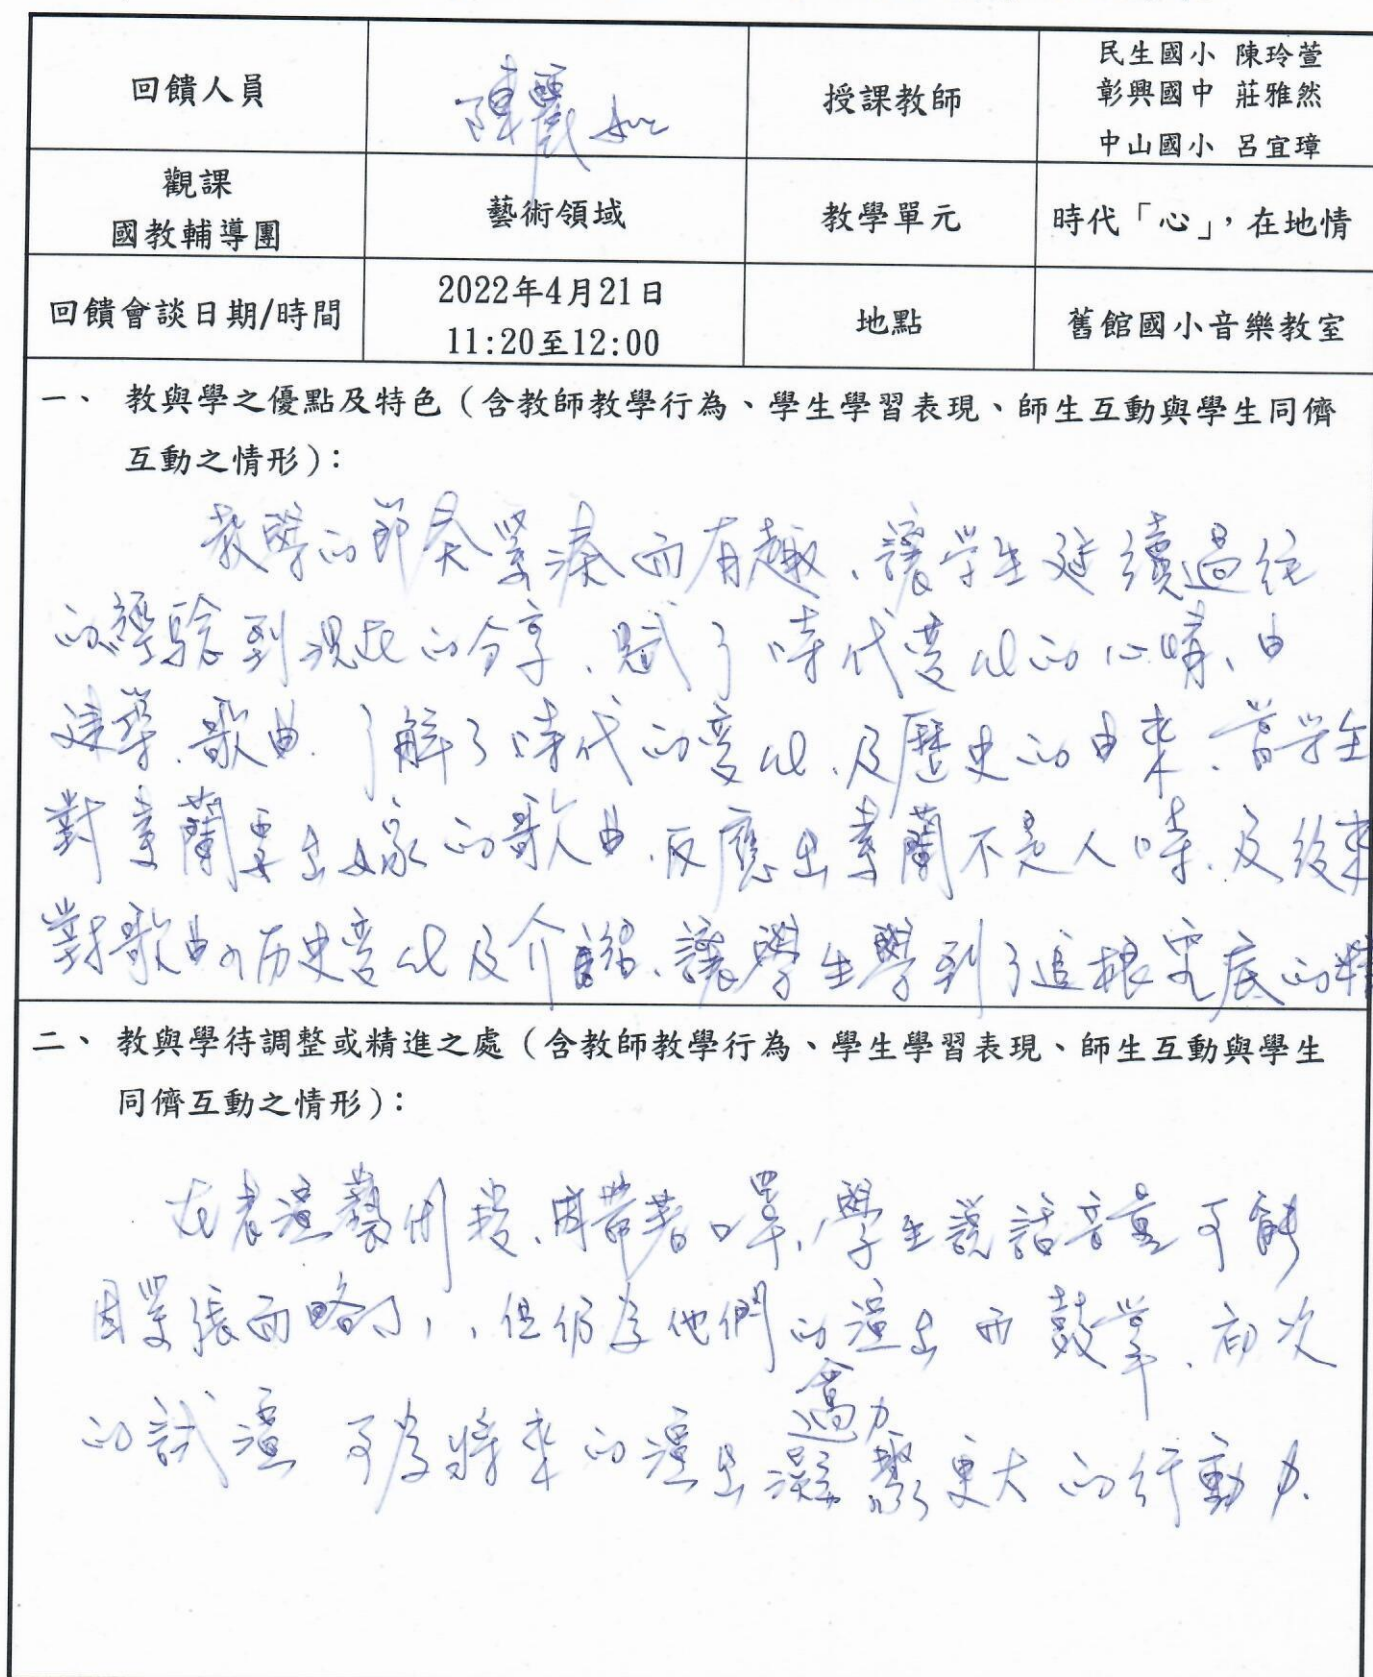 回饋人員 陳麗如 授課教師 民生國小 陳玲萱
彰興國中 莊雅然
中山國小 呂宜璋
觀課
國教輔導團 藝術領域 教學單元 時代「心」，在地情
回饋會談日期/時間 2022年4月21日
11:20至12:00 地點 舊館國小音樂教室
一、 教與學之優點及特色（含教師教學行為、學生學習表現、師生互動與學生同儕
互動之情形）：
教學的節奏緊湊而有趣、讓學生延續過往
的經驗到現在的分享、賦了時代變化的心情、由
建築、歌曲、了解了時代的變化、及歷史的由來、當學生
對素蘭要出嫁的歌曲、反應出素蘭不是人時、及後來
對歌曲的历史變化及介紹、讓學生學到了追根究底的精
二、 教與學待調整或精進之處（含教師教學行為、學生學習表現、師生互動與學生
同儕互動之情形）：
在表演藝術 因帶著口罩、學生說話音量可能
因緊張而略小、但仍為他們的演出而鼓掌、初次
的試演 可為將來的演出凝聚更大的行動力.